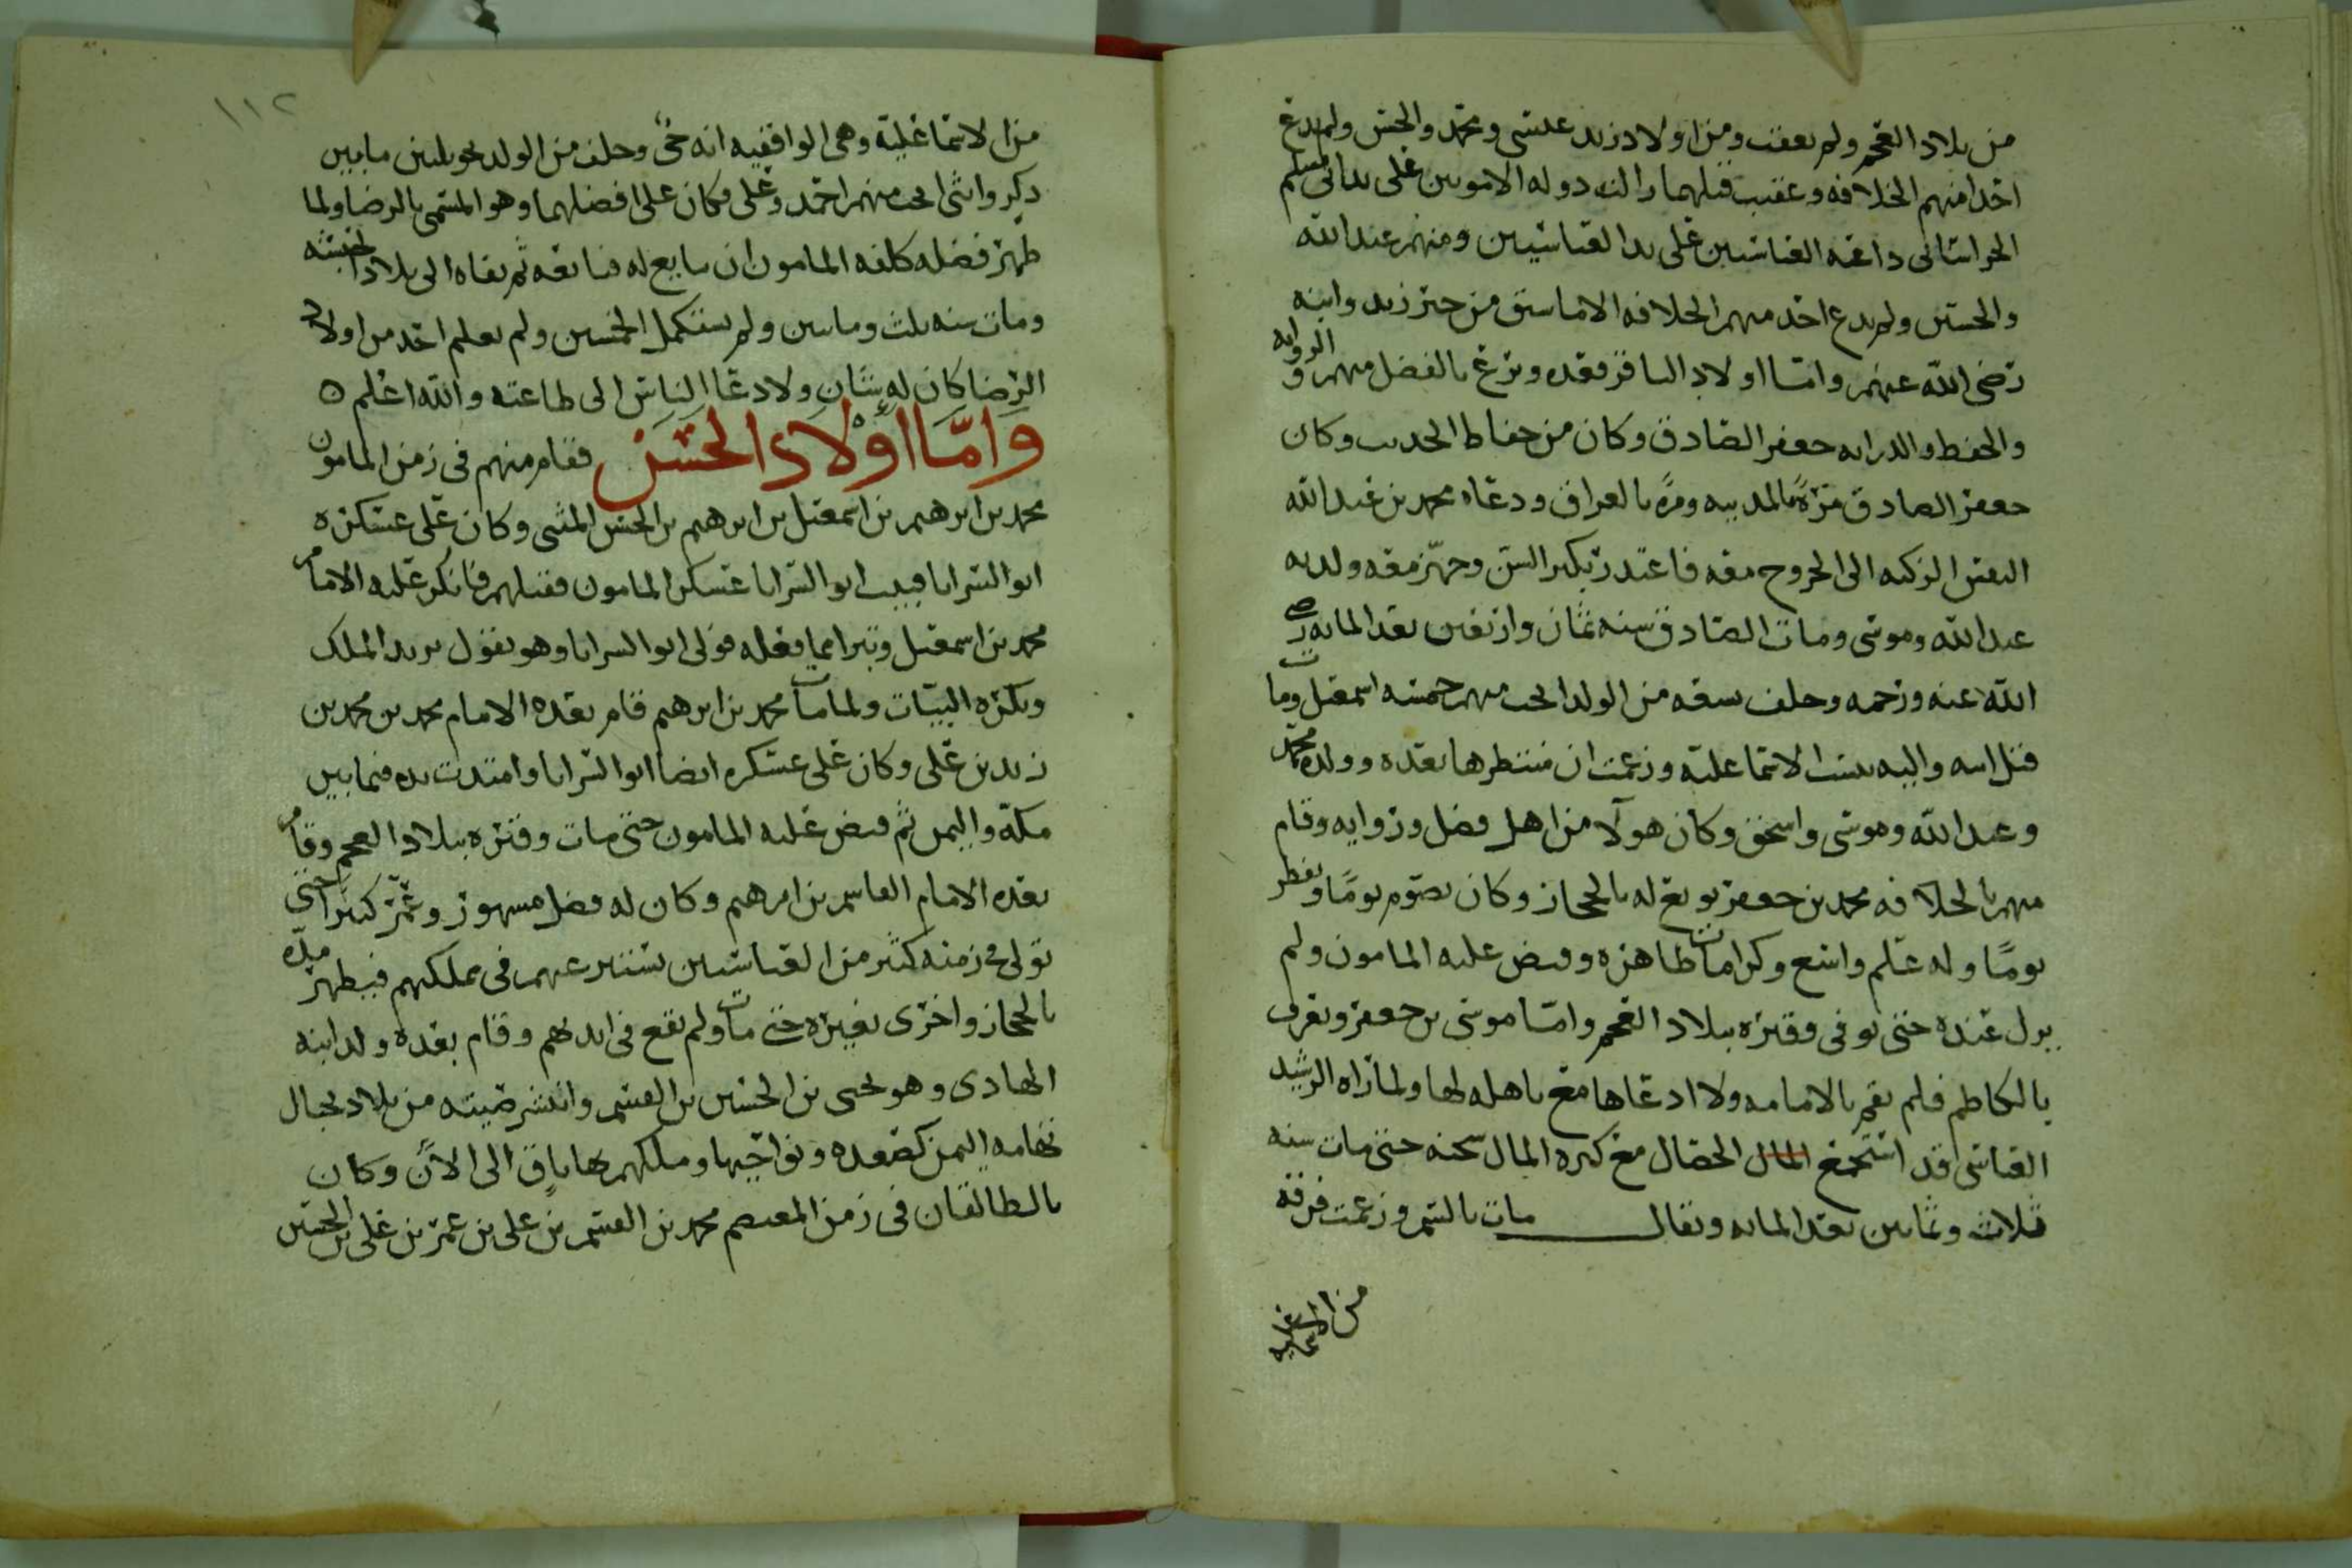 من بلاد العجم ولم يعقب ومن اولاد زيد عيسى ومحمد والحسن ولم يدع
احد منهم الخلافه وعقيب قتلهما زالت دوله الامويين على يد ابي مسلم
الخراساني داعيه العباسيين على يد العباسيين ومنهم عبد الله
والحسين ولم يدع احد منهم الخلافه الا ما سبق من خبر زيد وابنه
رضي الله عنهم واما اولاد الباقر فعده وبرع بالفضل منهم والروايه
والحفظ والدرايه جعفر الصادق وكان من حفاظ الحديث وكان
جعفر الصادق مرةً بالمدينه ومرةً بالعراق ودعاه محمد بن عبد الله
النفس الزكيه الى الخروج معه فاعتذر بكبر السن وجهّز معه ولديه
عبد الله وموسى ومات الصادق سنه ثمان واربعين بعد المايه رضي
الله عنه ورحمه وخلف سبعه من الولد انجب منهم خمسه اسمعيل ومات
قبل ابيه واليه ينسب الاسماعليه وزعمت ان منتظرها بعده وولده محمد
وعبد الله وموسى واسحق وكان هولآ من اهل فضل وروايه وقام
منهم بالخلافه محمد بن جعفر بويع له بالحجاز وكان يصوم يومًا ويفطر
يومًا وله علم واسع وكرامات ظاهره وقبض عليه المامون ولم
يزل عنده حتى توفي وقبره ببلاد العجم واما موسى بن جعفر ويعرف
بالكاظم فلم يقم بالامامه ولا ادعاها مع تاهله لها ولما راه الرشيد
العباسي قد استجمع المال الخصال مع كثره المال سجنه حتى مات سنه
ثلاث وثمانين بعد المايه ويقال مات بالسم وزعمت فرقه
من الاسماعليه
١١٢
من الاسماعليه وهي الواقفيه انه حيٌ وخلف من الولد نحو ثلثين ما بين
ذكر وانثى انجب منهم احمد وعلي وكان علي افضلهما وهو المسمى بالرضا ولما
ظهر فضله كلفه المامون ان يبايع له فبايعه ثم نفاه الى بلاد الحبشه
ومات سنه ثلث ومايتين ولم يستكمل الخمسين ولم يعلم احد من اولاد
الرضا كان له شان ولا دعا الناس الى طاعته والله اعلم ه
وَامَّا اوْلَاد الحَسَن فقام منهم في زمن المامون
محمد بن ابرهيم بن اسمعيل بن ابرهيم بن الحسن المثنى وكان على عسكره
ابو السرايا فبيت ابو السرايا عسكر المامون فقتلهم فانكر عليه الامام
محمد بن اسمعيل وتبرا مما فعله فولى ابو السرايا وهو يقول يريد الملك
ويكره البيات ولما مات محمد بن ابرهيم قام بعده الامام محمد بن محمد بن
زيد بن علي وكان على عسكره ايضا ابو السرايا وامتدت يده فيما بين
مكة واليمن ثم قبض عليه المامون حتى مات وقبره ببلاد العجم وقام
بعده الامام القاسم بن ابرهيم وكان له فضل مشهور وعُمّر كثيرا حتى
تولى في زمنه كثير من العباسيين يستتر عنهم في مملكتهم فيظهر مدّه
بالحجاز واخرى بغيره حتى مات ولم يقع في ايديهم وقام بعده ولد ابنه
الهادي وهو يحيى بن الحسين بن القسم وانتشر صيته من بلاد بجبال
تهامه اليمن كصعده ونواحيها وملكهم بها باقٍ الى الآن وكان
بالطالقان في زمن المعتصم محمد بن القسم بن علي بن عمر بن علي بن الحسين